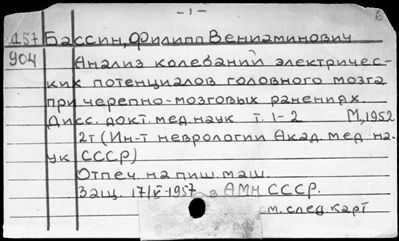 - 1 -
б
Д57 Бассин, Филипп Вениаминович
904 Анализ колебаний электричес-
ких потенциалов головного мозга
при черепно-мозговых ранениях.
Дисс. докт. мед. наук т. 1-2 М, 1952
2т (Ин-т неврологии Акад. мед. на-
ук СССР)
Отпеч. на пиш. маш.
Защ. 17/V-1957 в АМН СССР.
м. след карт